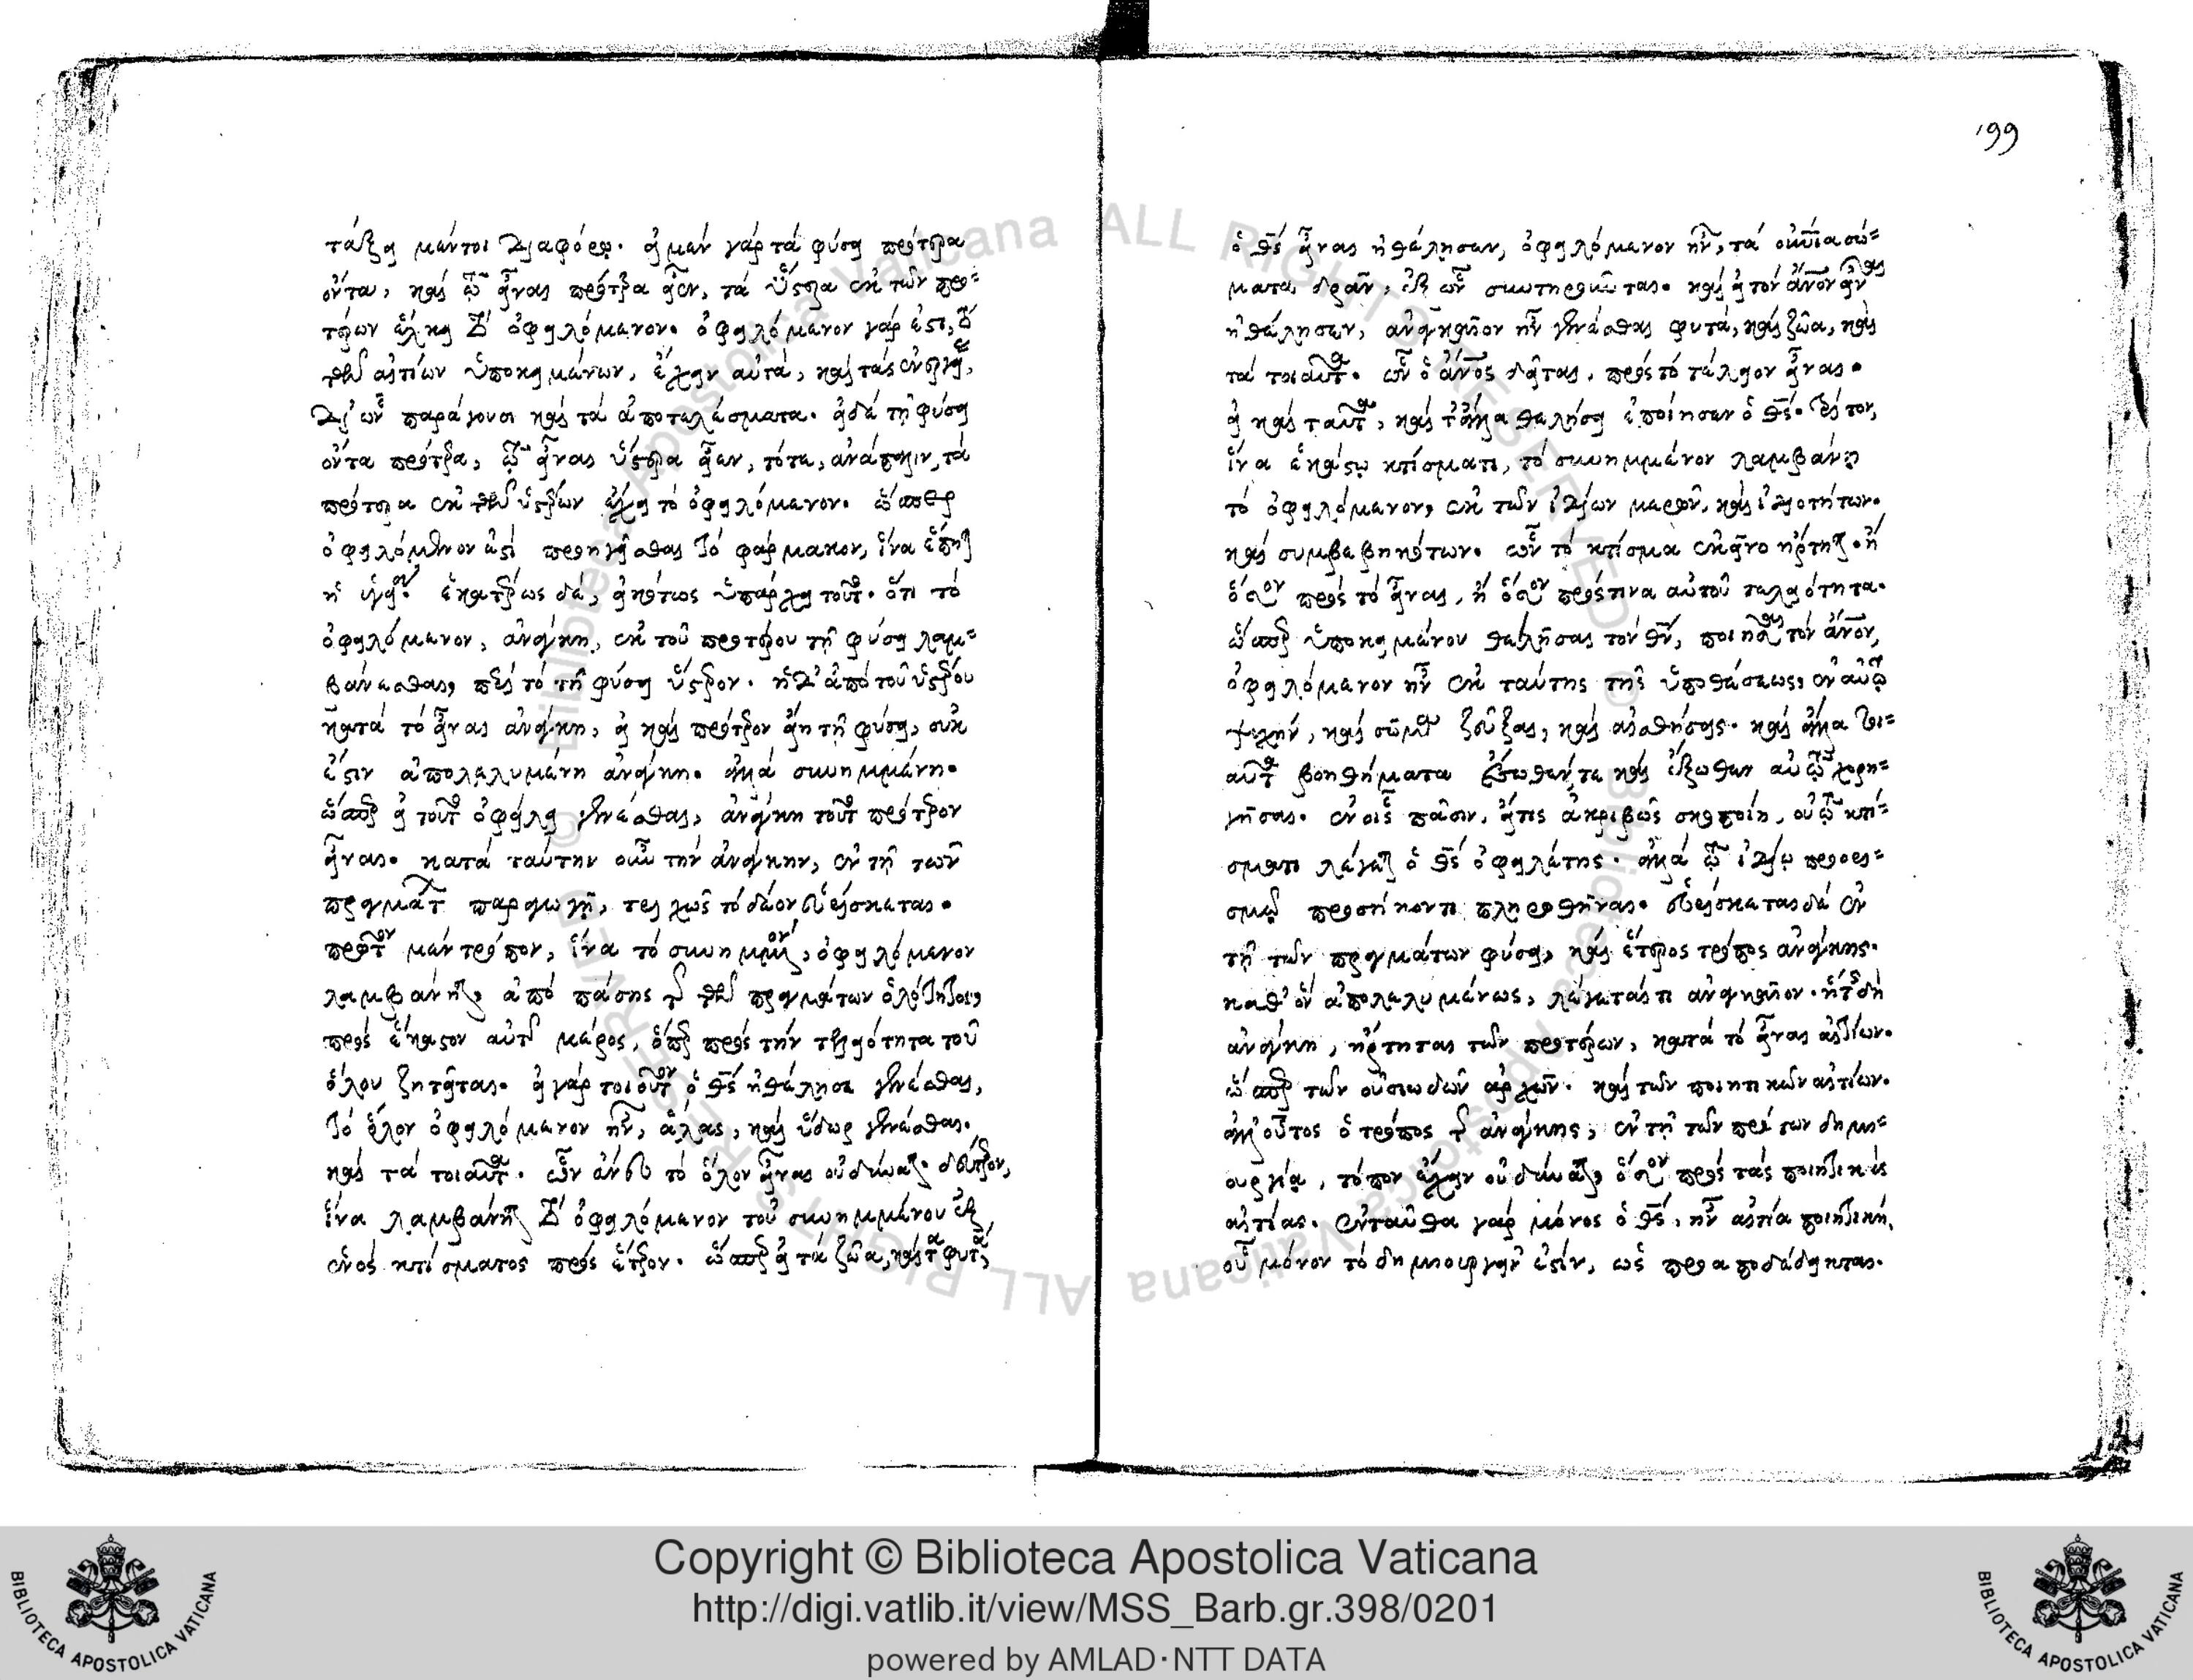 τάξει μέντοι διαφόρῳ. εἰ μὲν γὰρ τὰ φύσει πρότερα
ὄντα, καὶ τῷ εἶναι πρότερα εἶεν, τὰ ὕστερα ἐκ τῶν προ=
τέρων ἕλκει τὸ ὀφειλόμενον. ὀφειλόμενον γάρ ἐστι,
τῶν αἰτίων ὑποκειμένων, ἔχειν αὐτὰ, καὶ τὰς ἐνεργείας,
δι' ὧν παράγουσι καὶ τὰ ἀποτελέσματα. εἰ δὲ τῇ φύσει
ὄντα πρότερα, τῷ εἶναι ὕστερα εἶεν, τότε, ἀνάπαλιν, τὰ
πρότερα ἐκ τῶν ὑστέρων ἕλκει τὸ ὀφειλόμενον. ὥσπερ
ὀφειλόμενον ἐστὶ προηγεῖσθαι τὸ φάρμακον, ἵνα ἕπηται
ἡ ὑγεία. ἑκατέρως δὲ, εἰκότως ὑπάρχει τοῦτο. ὅτι τὸ
ὀφειλόμενον, ἀνάγκη, ἐκ τοῦ προτέρου τῇ φύσει λαμ=
βάνεσθαι, πρὸς τὸ τῇ φύσει ὕστερον. ἡ δ' ἀπὸ τοῦ ὑστέρου
κατὰ τὸ εἶναι ἀνάγκη, εἰ καὶ πρότερον εἴη τῇ φύσει, οὐκ
ἔστιν ἀπολελυμένη ἀνάγκη. ἀλλὰ συνημμένη.
ὥσπερ εἰ τοῦτο ὀφείλει γενέσθαι, ἀνάγκη τοῦτο πρότερον
εἶναι. κατὰ ταύτην οὖν τὴν ἀνάγκην, ἐν τῇ τῶν
πραγμάτων παραγωγῇ, τριχῶς τὸ δέον εὑρίσκεται.
πρῶτον μὲν τρόπον, ἵνα τὸ συνημμένον, ὀφειλόμενον
λαμβάνηται, ἀπὸ πάσης τῆς τῶν πραγμάτων ὁλότητος,
πρὸς ἕκαστον αὐτῆς μέρος, ὅπερ πρὸς τὴν τελειότητα τοῦ
ὅλου ζητεῖται. εἰ γὰρ τοιοῦτον ὁ θς ἠθέλησε γενέσθαι,
τὸ ὅλον ὀφειλόμενον ἦν, ἅλας, καὶ ὕδωρ γενέσθαι.
καὶ τὰ τοιαῦτα. ὧν ἄνευ τὸ ὅλον εἶναι οὐ δύναται. δεύτερον,
ἵνα λαμβάνηται τὸ ὀφειλόμενον τοῦ συνημμένου ἐξ
ἑνὸς κτίσματος πρὸς ἕτερον. ὥσπερ εἰ τὰ ζῶα, καὶ τὰ φυτὰ,
199
ὁ θς εἶναι ἠθέλησεν, ὀφειλόμενον ἦν, τὰ οὐράνια σώ=
ματα δρᾶν, ἐξ ὧν συντηροῦνται. καὶ εἰ τὸν ἄνον εἶναι
ἠθέλησεν, ἀναγκαῖον ἦν γενέσθαι φυτὰ, καὶ ζῶα, καὶ
τὰ τοιαῦτα. ὧν ὁ ἄνος δεῖται, πρὸς τὸ τέλειον εἶναι.
εἰ καὶ ταῦτα, καὶ τἄλλα θελήσει ἐποίησεν ὁ θς. τρίτον,
ἵνα ἑκάστῳ κτίσματι, τὸ συνημμένον λαμβάνηται
τὸ ὀφειλόμενον, ἐκ τῶν ἰδίων μερῶν, καὶ ἰδιοτήτων.
καὶ συμβεβηκότων. ὧν τὸ κτίσμα ἐκεῖνο ἤρτηται. ἢ
ὅσον πρὸς τὸ εἶναι, ἢ ὅσον πρός τινα αὐτοῦ τελειότητα.
ὥσπερ ὑποκειμένου θελῆσαι τὸν θν, ποιῆσαι τὸν ἄνον,
ὀφειλόμενον ἦν ἐκ ταύτης τῆς ὑποθέσεως, ἐν αὐτῷ
ψυχὴν, καὶ σῶμα ζεῦξαι, καὶ αἰσθήσεις. καὶ ἄλλα τοι=
αῦτα βοηθήματα ἔσωθέν τε καὶ ἔξωθεν αὐτῷ χορη=
γῆσαι. ἐν οἷς πᾶσιν, εἴτις ἀκριβῶς σκοποίη, οὐ τῷ κτί=
σματι λέγεται ὁ θς ὀφειλέτης. ἀλλὰ τῷ ἰδίῳ προορι=
σμῷ προσήκοντι πληρωθῆναι. εὑρίσκεται δὲ ἐν
τῇ τῶν πραγμάτων φύσει, καὶ ἕτερος τρόπος ἀνάγκης.
καθ' ὃν ἀπολελυμένως, λέγεται τι ἀναγκαῖον. ἥτις δὴ
ἀνάγκη, ἤρτηται τῶν προτέρων, κατὰ τὸ εἶναι αἰτίων.
ὥσπερ τῶν οὐσιωδῶν ἀρχῶν. καὶ τῶν ποιητικῶν αἰτίων.
ἀλλ' οὗτος ὁ τρόπος τῆς ἀνάγκης, ἐν τῇ τῶν πρώτων δημι=
ουργίᾳ, τόπον ἔχειν οὐ δύναται, ὅσον πρὸς τὰς ποιητικὰς
αἰτίας. ἐνταῦθα γὰρ μόνος ὁ θς, ἦν αἰτία ποιητικὴ,
οὗ μόνον τὸ δημιουργεῖν ἐστὶν, ὡς προαποδέδεικται.
Copyright © Biblioteca Apostolica Vaticana
http://digi.vatlib.it/view/MSS_Barb.gr.398/0201
powered by AMLAD·NTT DATA
BIBLIOTECA APOSTOLICA VATICANA
BIBLIOTECA APOSTOLICA VATICANA